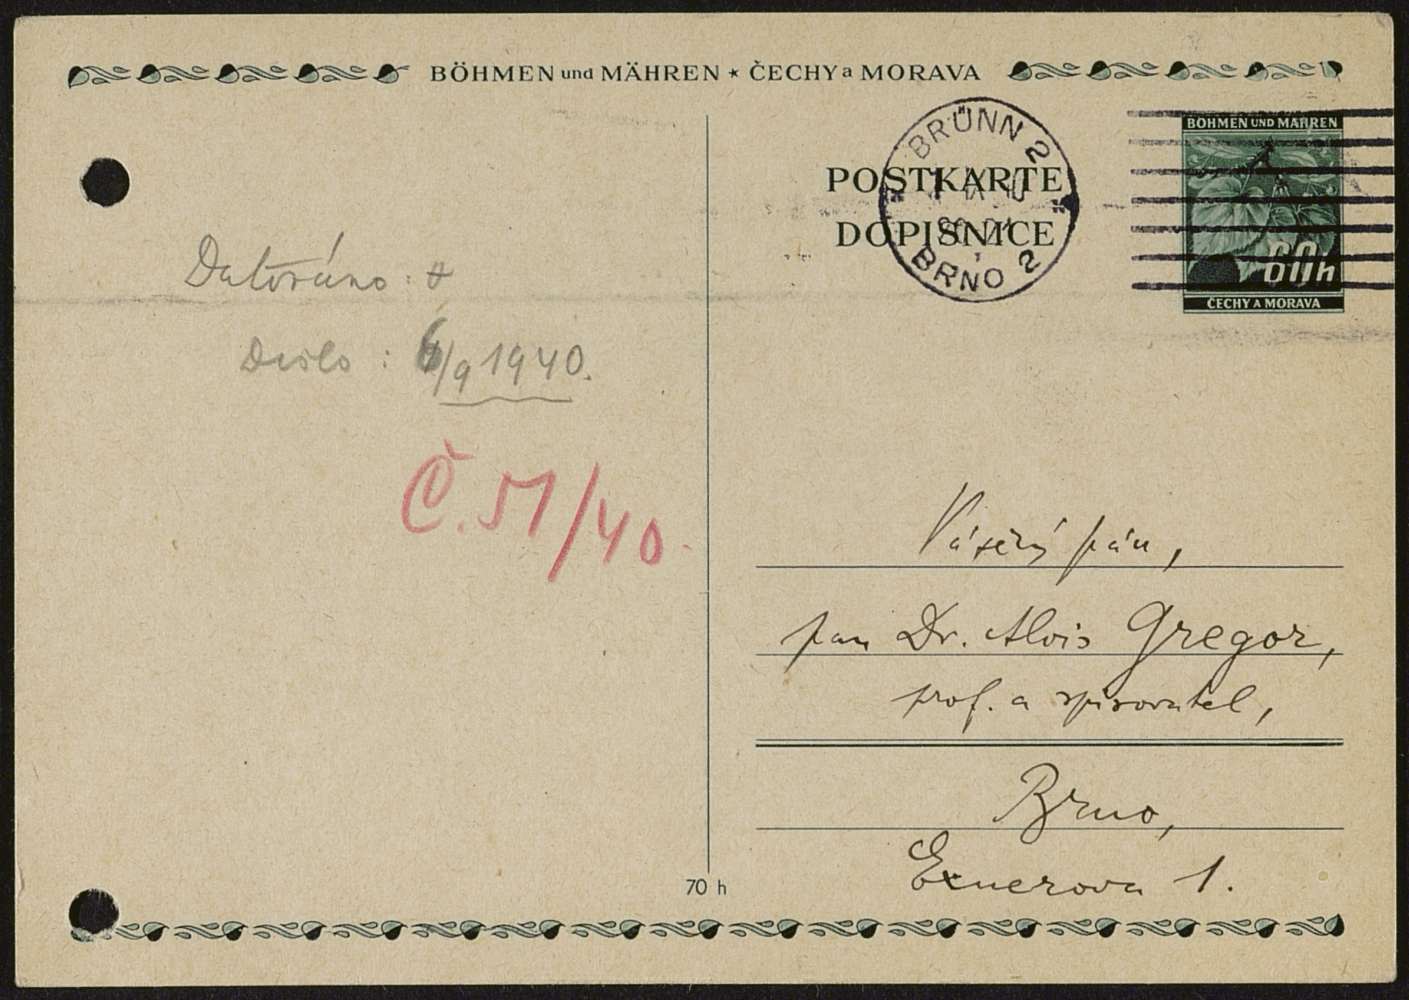 BÖHMEN und MÄHREN * ČECHY a MORAVA
BRÜNN 2
BRNO 2
POSTKARTE
DOPISNICE
BÖHMEN UND MÄHREN
60h
ČECHY A MORAVA
Datováno:
Došlo: 6/9 1940.
Č. 51/40.
Vážený pán,
pan Dr. Alois Gregor,
prof. a spisovatel,
Brno,
Exnerova 1.
70 h